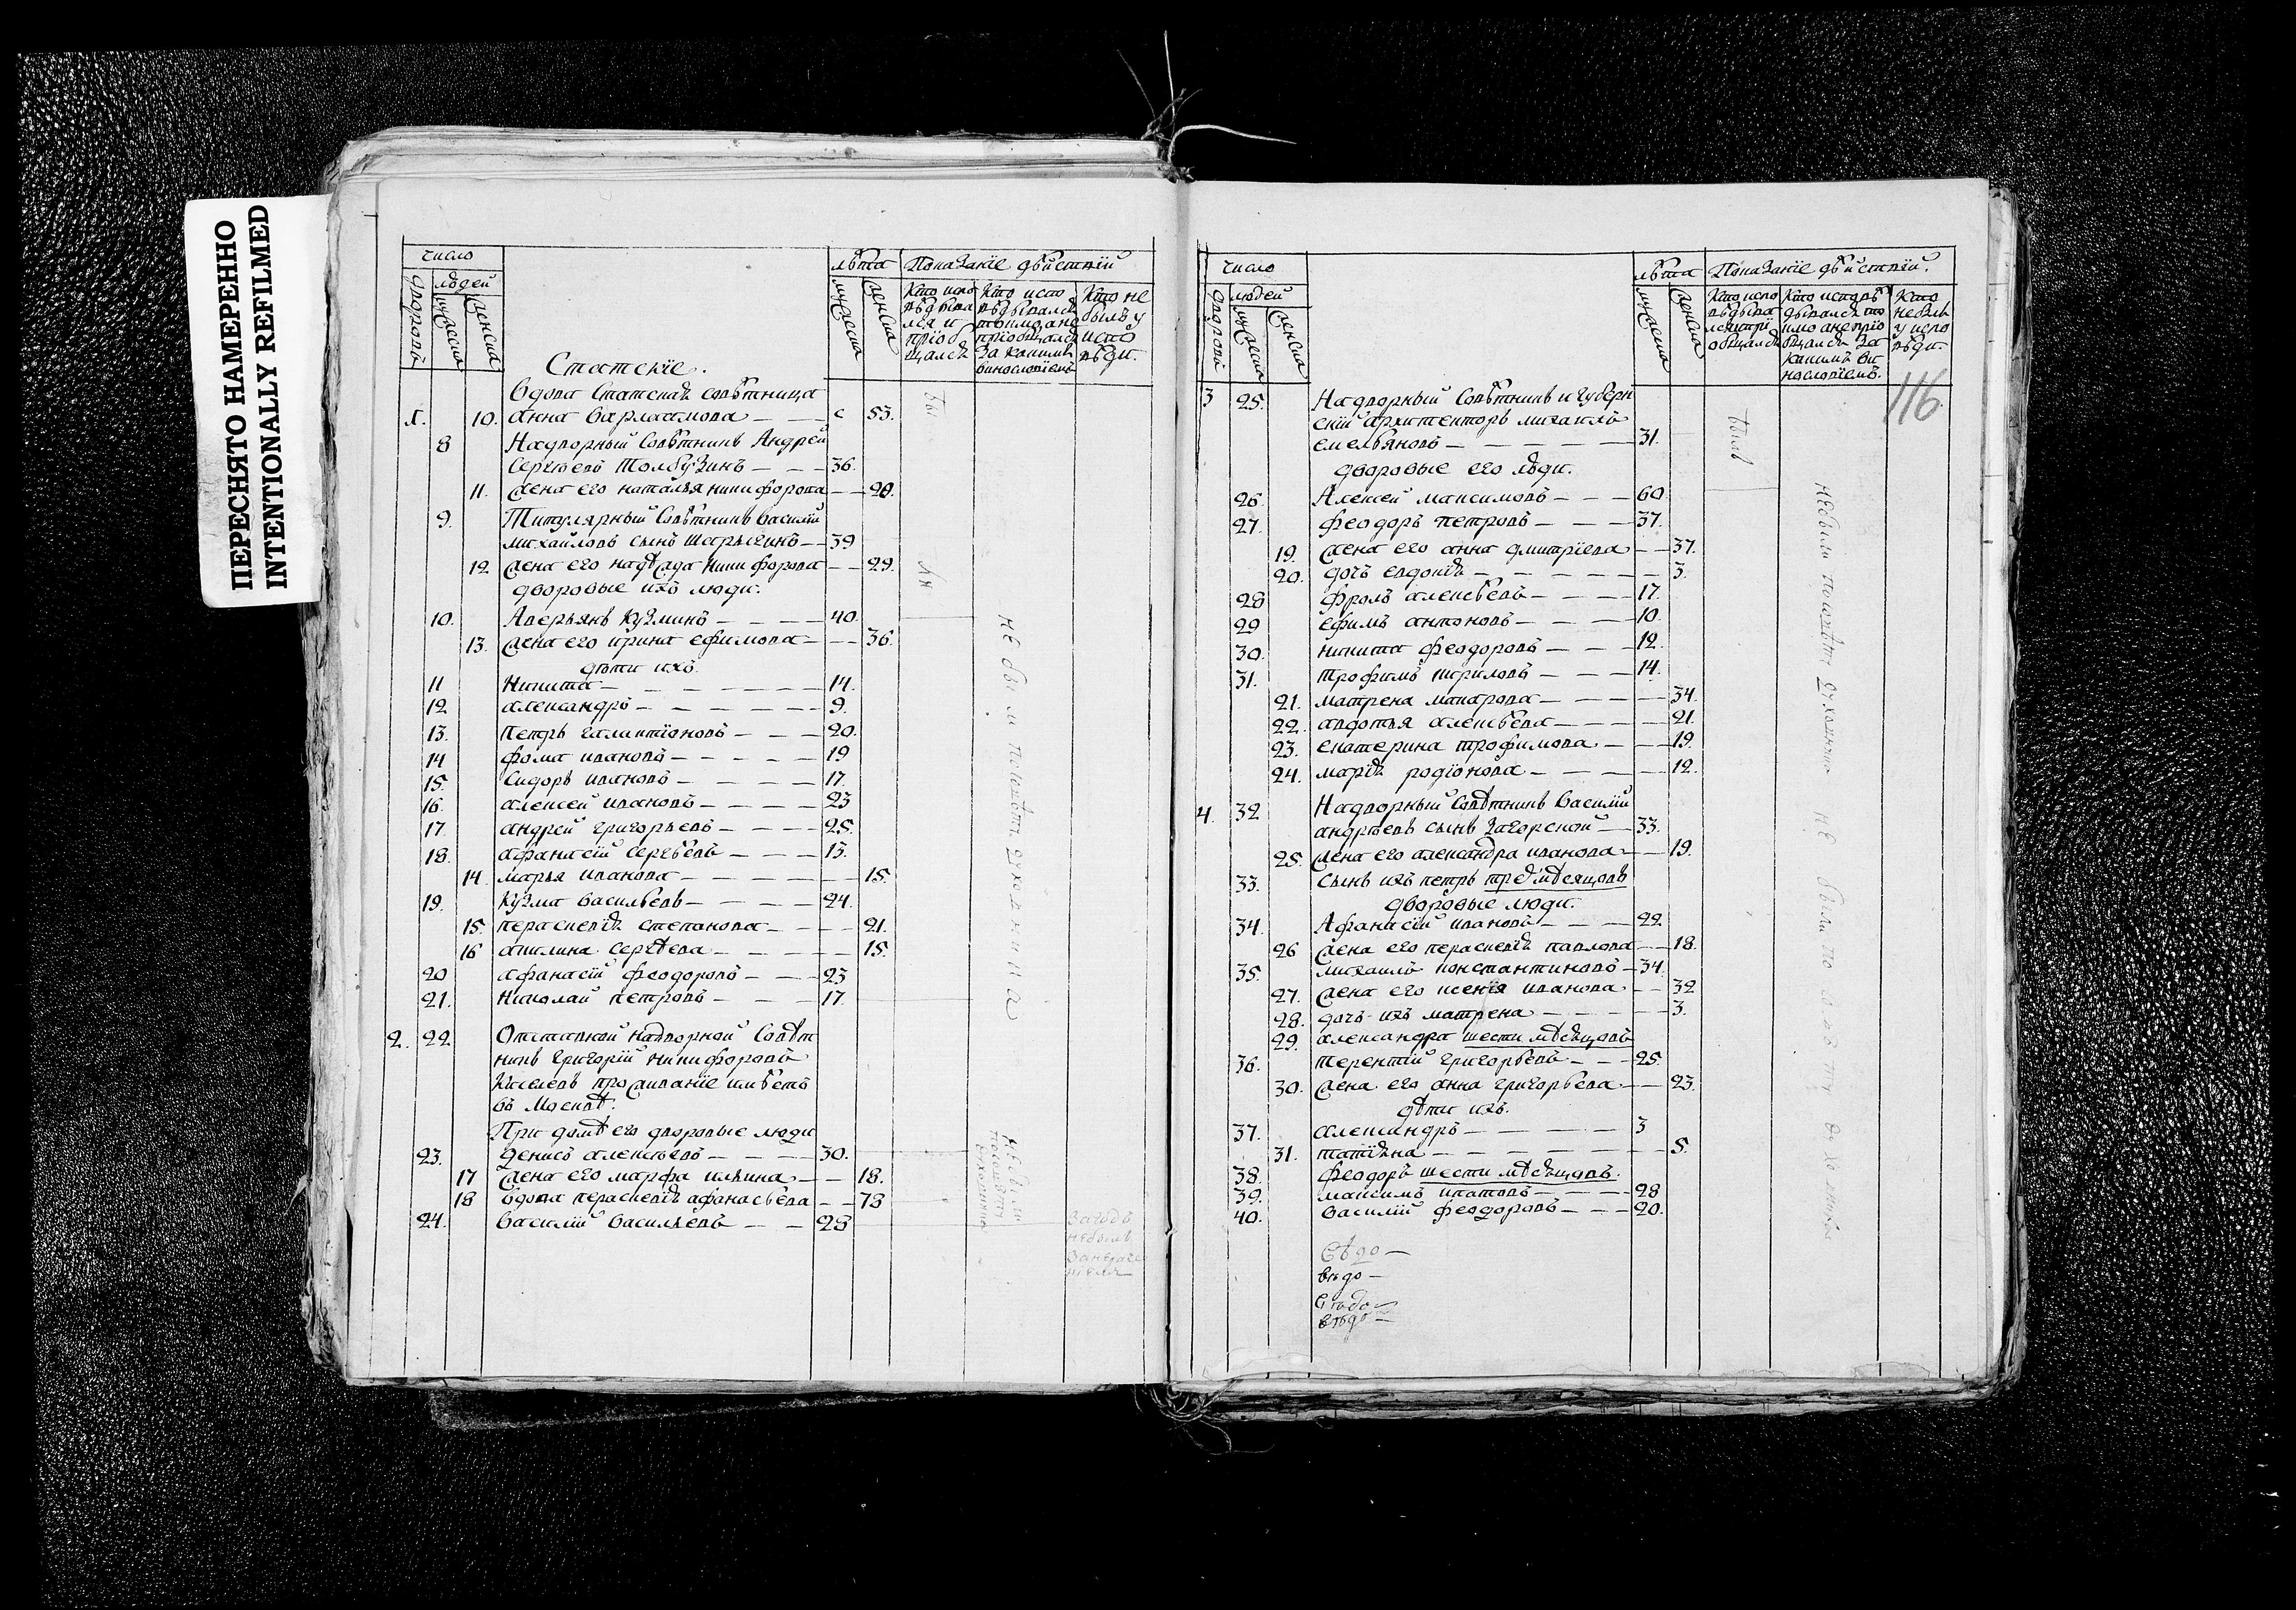 ПЕРЕСНЯТО НАМЕРЕННО
INTENTIONALLY REFILMED
число
людей
дворовъ
мужеска
женска
лѣта
мужеска
женска
Показанїе дѣйствїй
Кто испо
вѣдыва
лся и
прїоб
щался
Кто испо
вѣдывался
токмо, а не
прїобщался
за какимъ
винословїемъ
Кто не
былъ у
испо
вѣди.
Статскїе.
Вдова статская совѣтница
1. 10. анна варлаамова — 53.
8 Надворный Совѣтникъ Андрей
Сергѣевъ Толбузинъ — — — 36.
11. жена его наталья никифорова — — 20.
9. Титулярный Совѣтникъ василїй
михайловъ сынъ шарыгинъ — — 39
12 жена его надѣжда никифорова — — 29.
дворовые ихъ люди.
10. Аверьянъ Кузминъ — — — — 40.
13. жена его ирина ефимова — — — 36.
дѣти ихъ
11 Никита — — — — — — — 14.
12 александръ — — — — — — 9.
13. петръ галактїоновъ — — — 20.
14 фома ивановъ — — — — — 19
15. Сидоръ ивановъ — — — — 17.
16. алексей ивановъ — — — — 23
17. андрей григорьевъ — — — — 25.
18. афанасїй сергѣевъ — — — — 13.
14. марья иванова — — — — — — 15.
19. Кузма васильевъ — — — — 24.
15. параскевїя степанова — — — — 21.
16 акилина сергѣева — — — — — 15.
20 афанасїй феодоровъ — — — 23
21. николай петровъ — — — — 17.
2. 22 Отставной надворной Совѣт
никъ григорїй никифоровъ
Киселевъ прожыванїе имѣетъ
въ Москвѣ.
При домѣ его дворовые люди
23. денисъ алексѣевъ — — — — 30.
17 жена его марфа ильина — — 18.
18 вдова параскевїя афанасьева — — 78
24. василїй васильевъ — — — 28
Бы
ли
не были по совѣту духовника
не были
по совѣту
духовника
за
небыл
за
число
людей
дворовъ
мужеска
женска
лѣта
мужеска
женска
Показанїе дѣйствїй.
Кто испо
вѣдыва
лся и прї
общался
Кто исповѣ
дывался то
кмо а не прїо
бщался за
какимъ ви
нословїемъ.
Кто
не былъ
у испо
вѣди.
116
3 25. Надворный Совѣтникъ и губерн
скїй архитекторъ михаилъ
емельяновъ — — — — — 31.
дворовые его люди.
26. Алексей максимовъ — — — 60.
27. феодоръ петровъ — — — 37.
19. жена его анна дмитрїева — — 37.
20. дочь евдокїя — — — — — — 3.
28 фролъ алексѣевъ — — — — 17.
29 ефимъ антоновъ — — — — 10.
30. никита феодоровъ — — — 12.
31. трофимъ кириловъ — — — 14.
21. матрена макарова — — — — 34.
22. авдотья алексѣева — — — — 21.
23. екатерина трофимова — — — 19.
24. марїя родїонова — — — — — 12.
4. 32 Надворный Совѣтникъ василїй
андрѣевъ сынъ загорской — 33.
25. жена его александра иванова — — 19.
33. сынъ ихъ петръ
дворовые люди.
34. Афанасїй ивановъ — — — 22
26 жена его параскевїя павлова — — 18.
35. михаилъ константиновъ — 34.
27. жена его ксенїя иванова — — 32
28. дочь ихъ матрена — — — — — 3.
29. александра шести мѣсяцовъ
36. терентїй григорьевъ — — — 25.
30. жена его анна григорьева — — 23.
дѣти ихъ.
37. александръ — — — — — 3
31. татїяна — — — — — — — 5.
38. феодоръ шести мѣсяцовъ.
39. максимъ — — — — 28
40. василїй феодоровъ — — — 20.
былъ
не были по совѣту духовника
не были по совѣту духовника